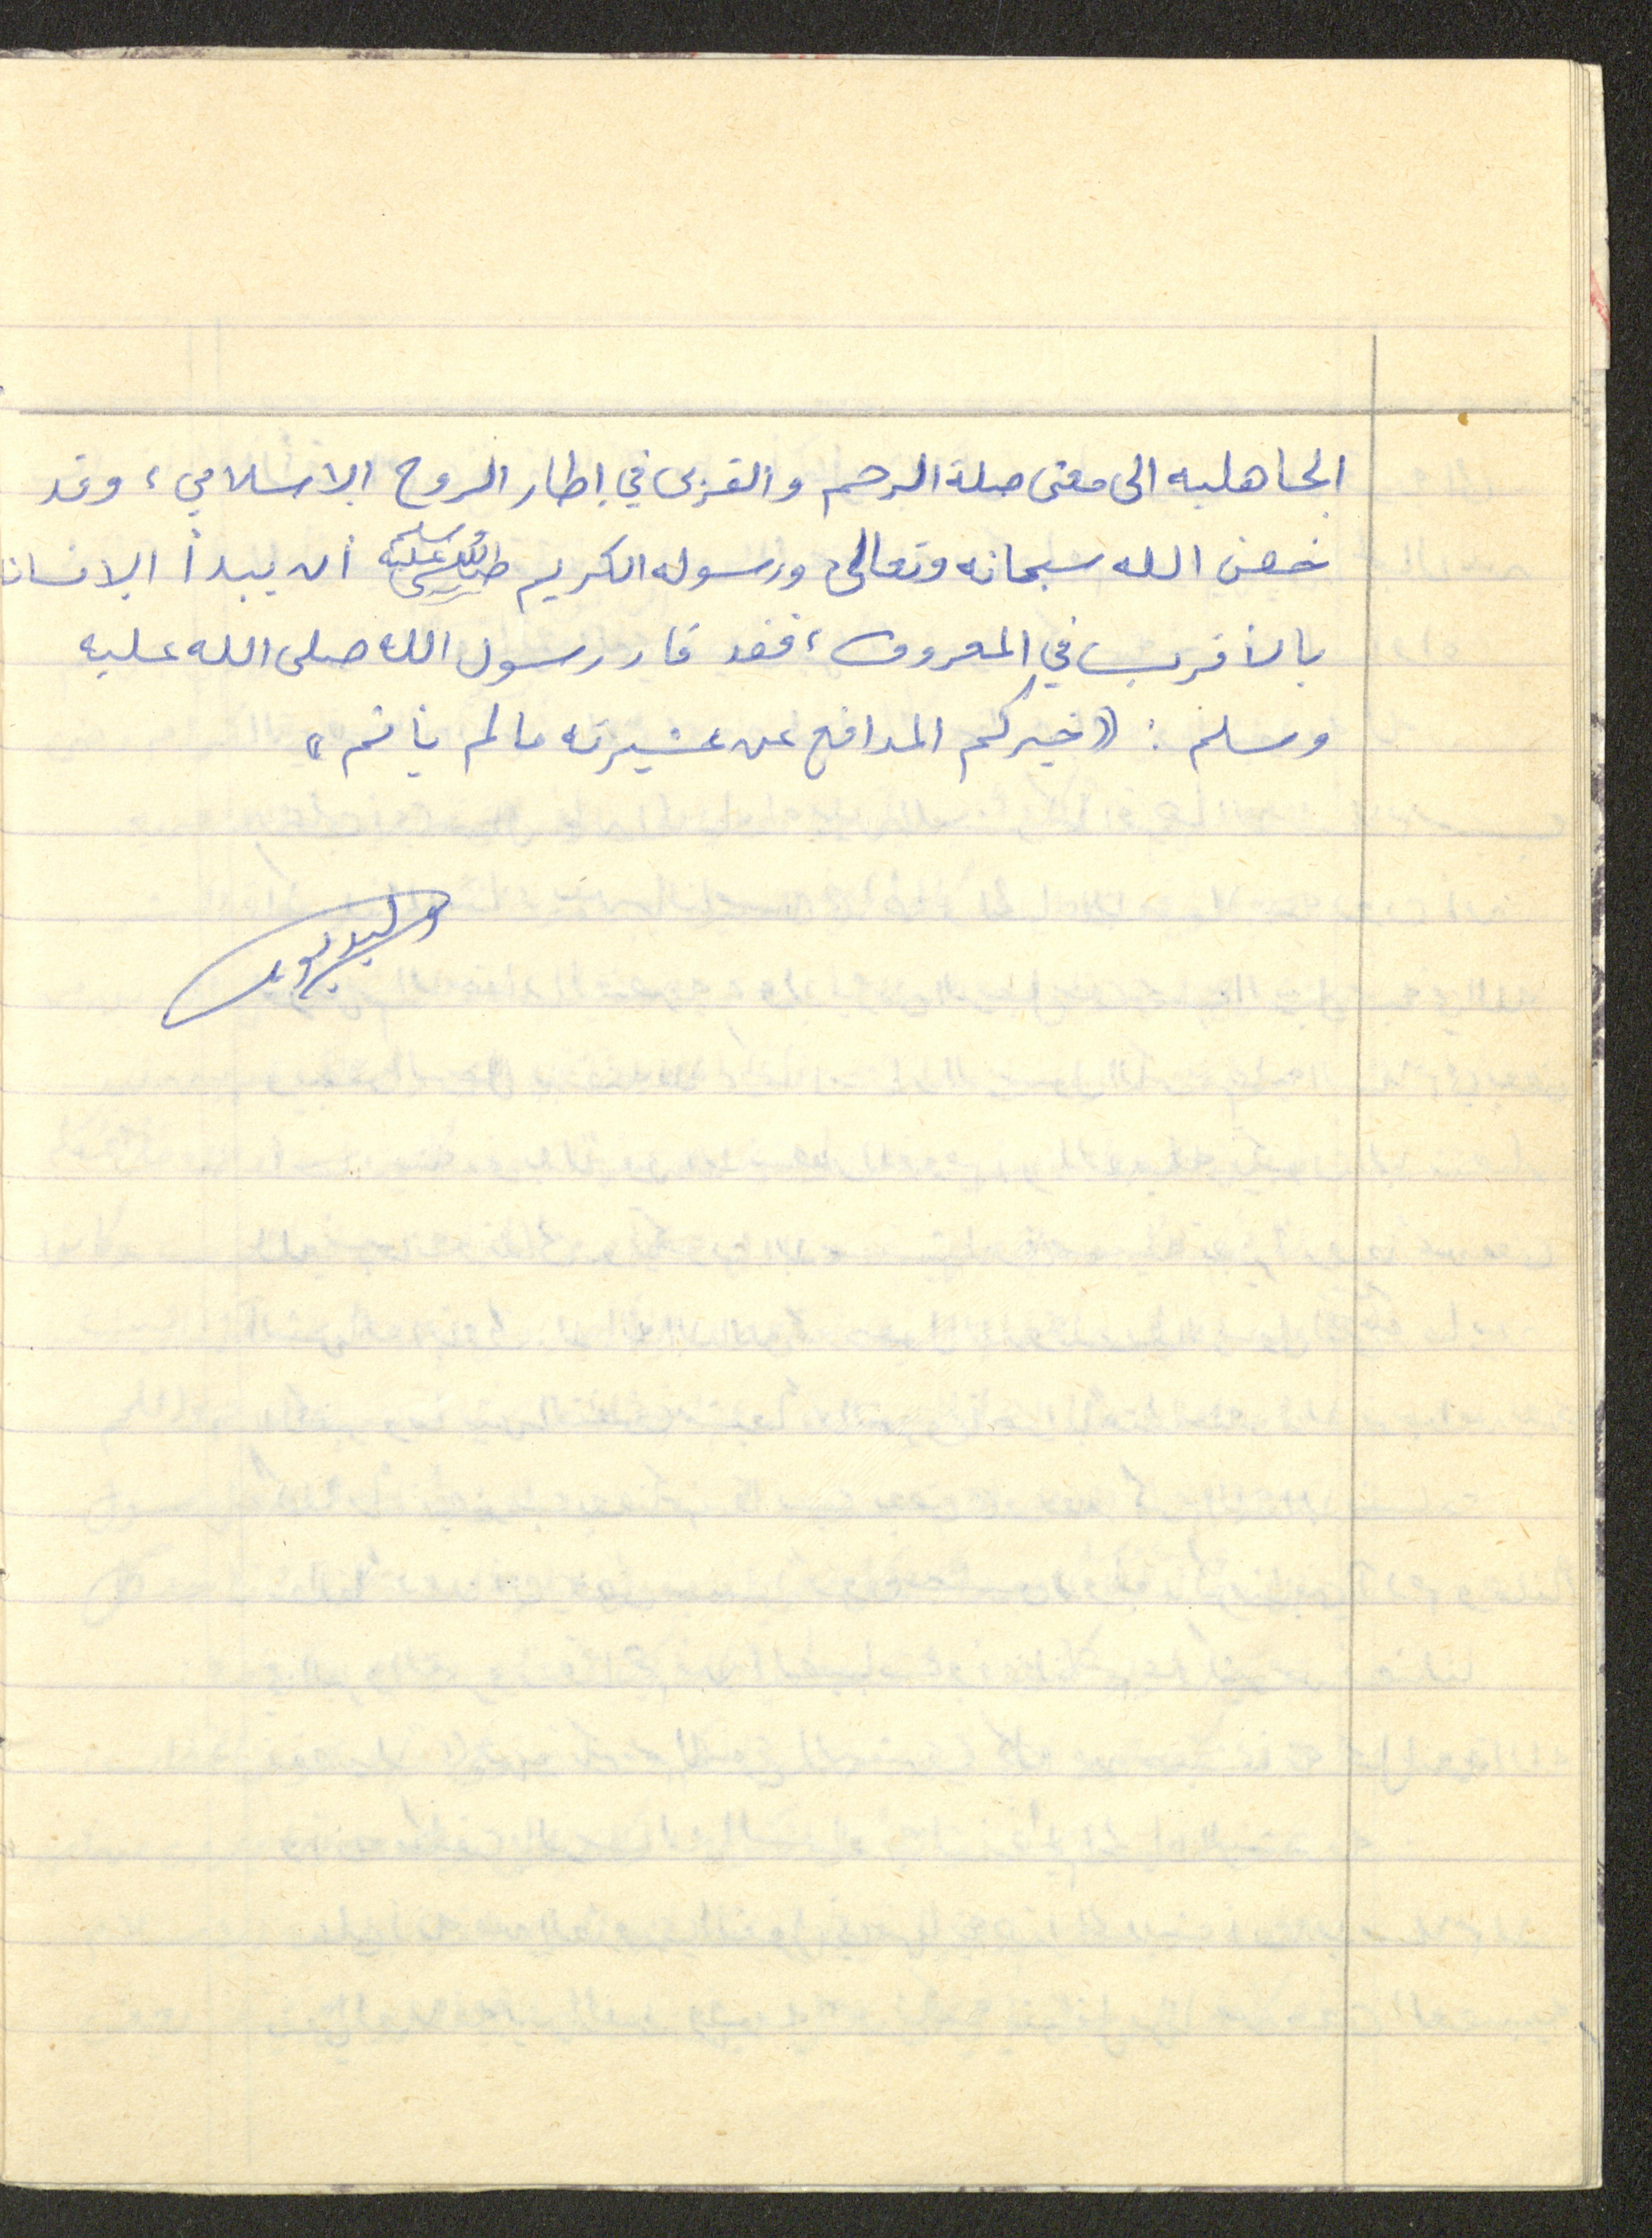 الجاهليه الى معنى صلة الرحم والقربى في إطار الروح الاسلامي، وقد
خص الله سبحانه وتعالى ورسوله الكريم صلى الله عليه وسلم أن يبدأ الإنسان
بالأقرب في المعروف، فقد قال رسول الله صلى الله عليه
وسلم: «خيركم المدافع عن عشيرته مالم يأثم»